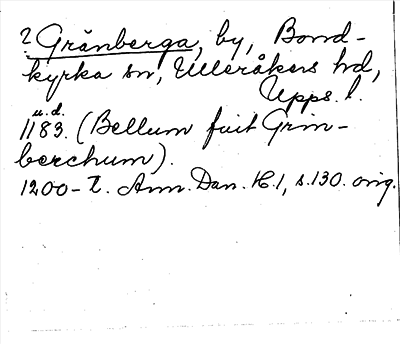 ? Gränberga, by, Bond-
kyrka sn, Ulleråkers hd,
Upps. l.
u.d.
1183. (Bellum fuit Grin-
berchum).
1200-t. Ann. Dan. H. 1, s. 130. orig.